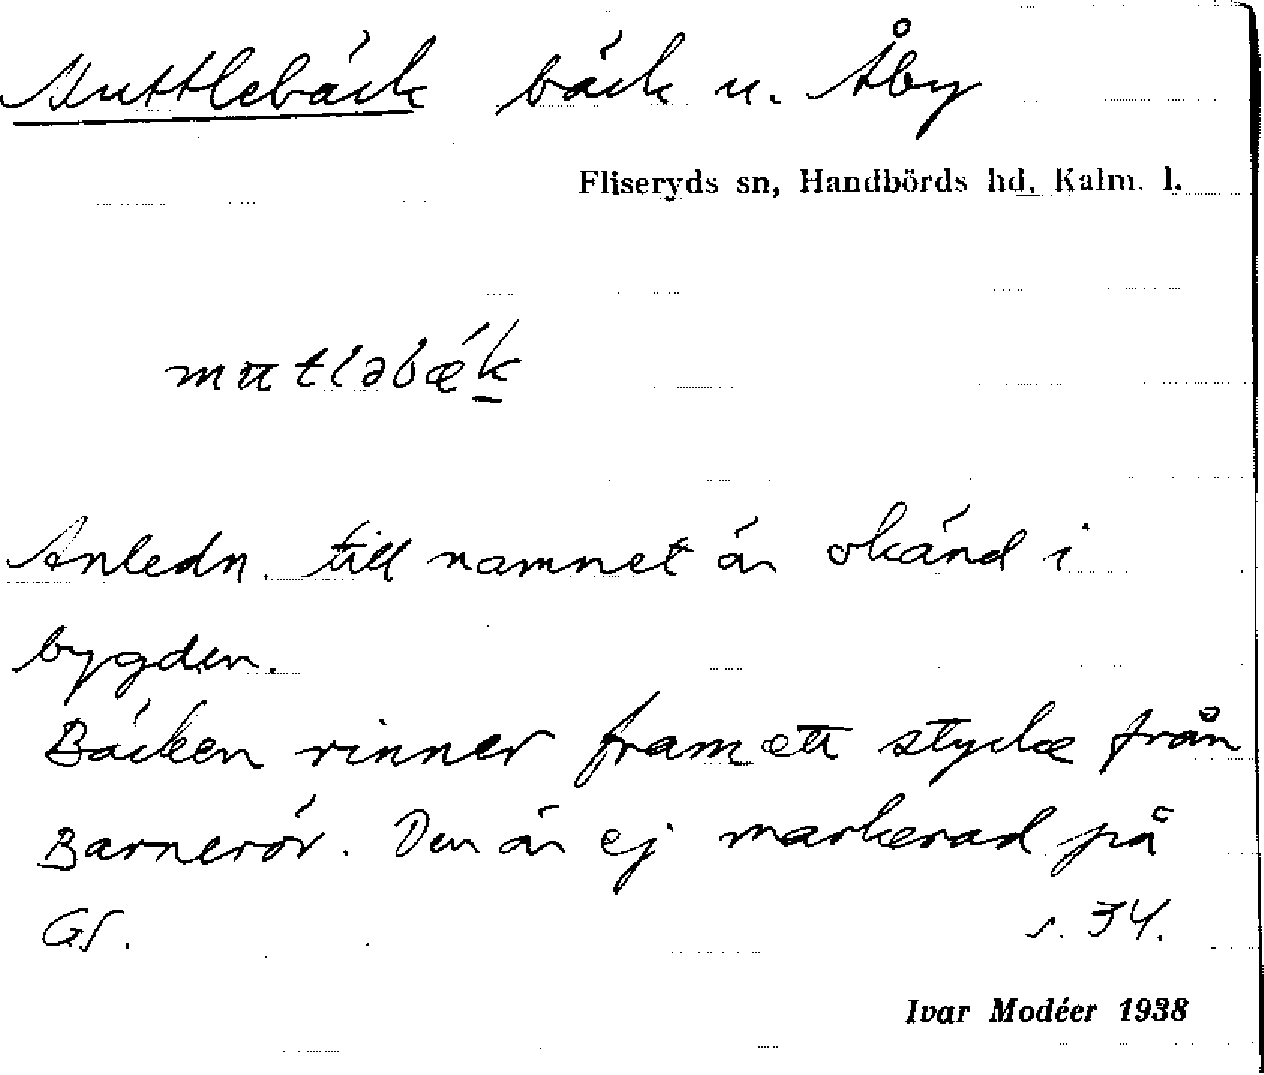 Muttlebäck bäck u. Åby
Fliseryds sn, Handbörds hd, Kalm. l.
mutləbæk
Anledn. till namnet är okänd i
bygden.
Bäcken rinner fram ett stycke från
Barnerör. Den är ej markerad på
GS. s. 34.
Ivar Modéer 1938